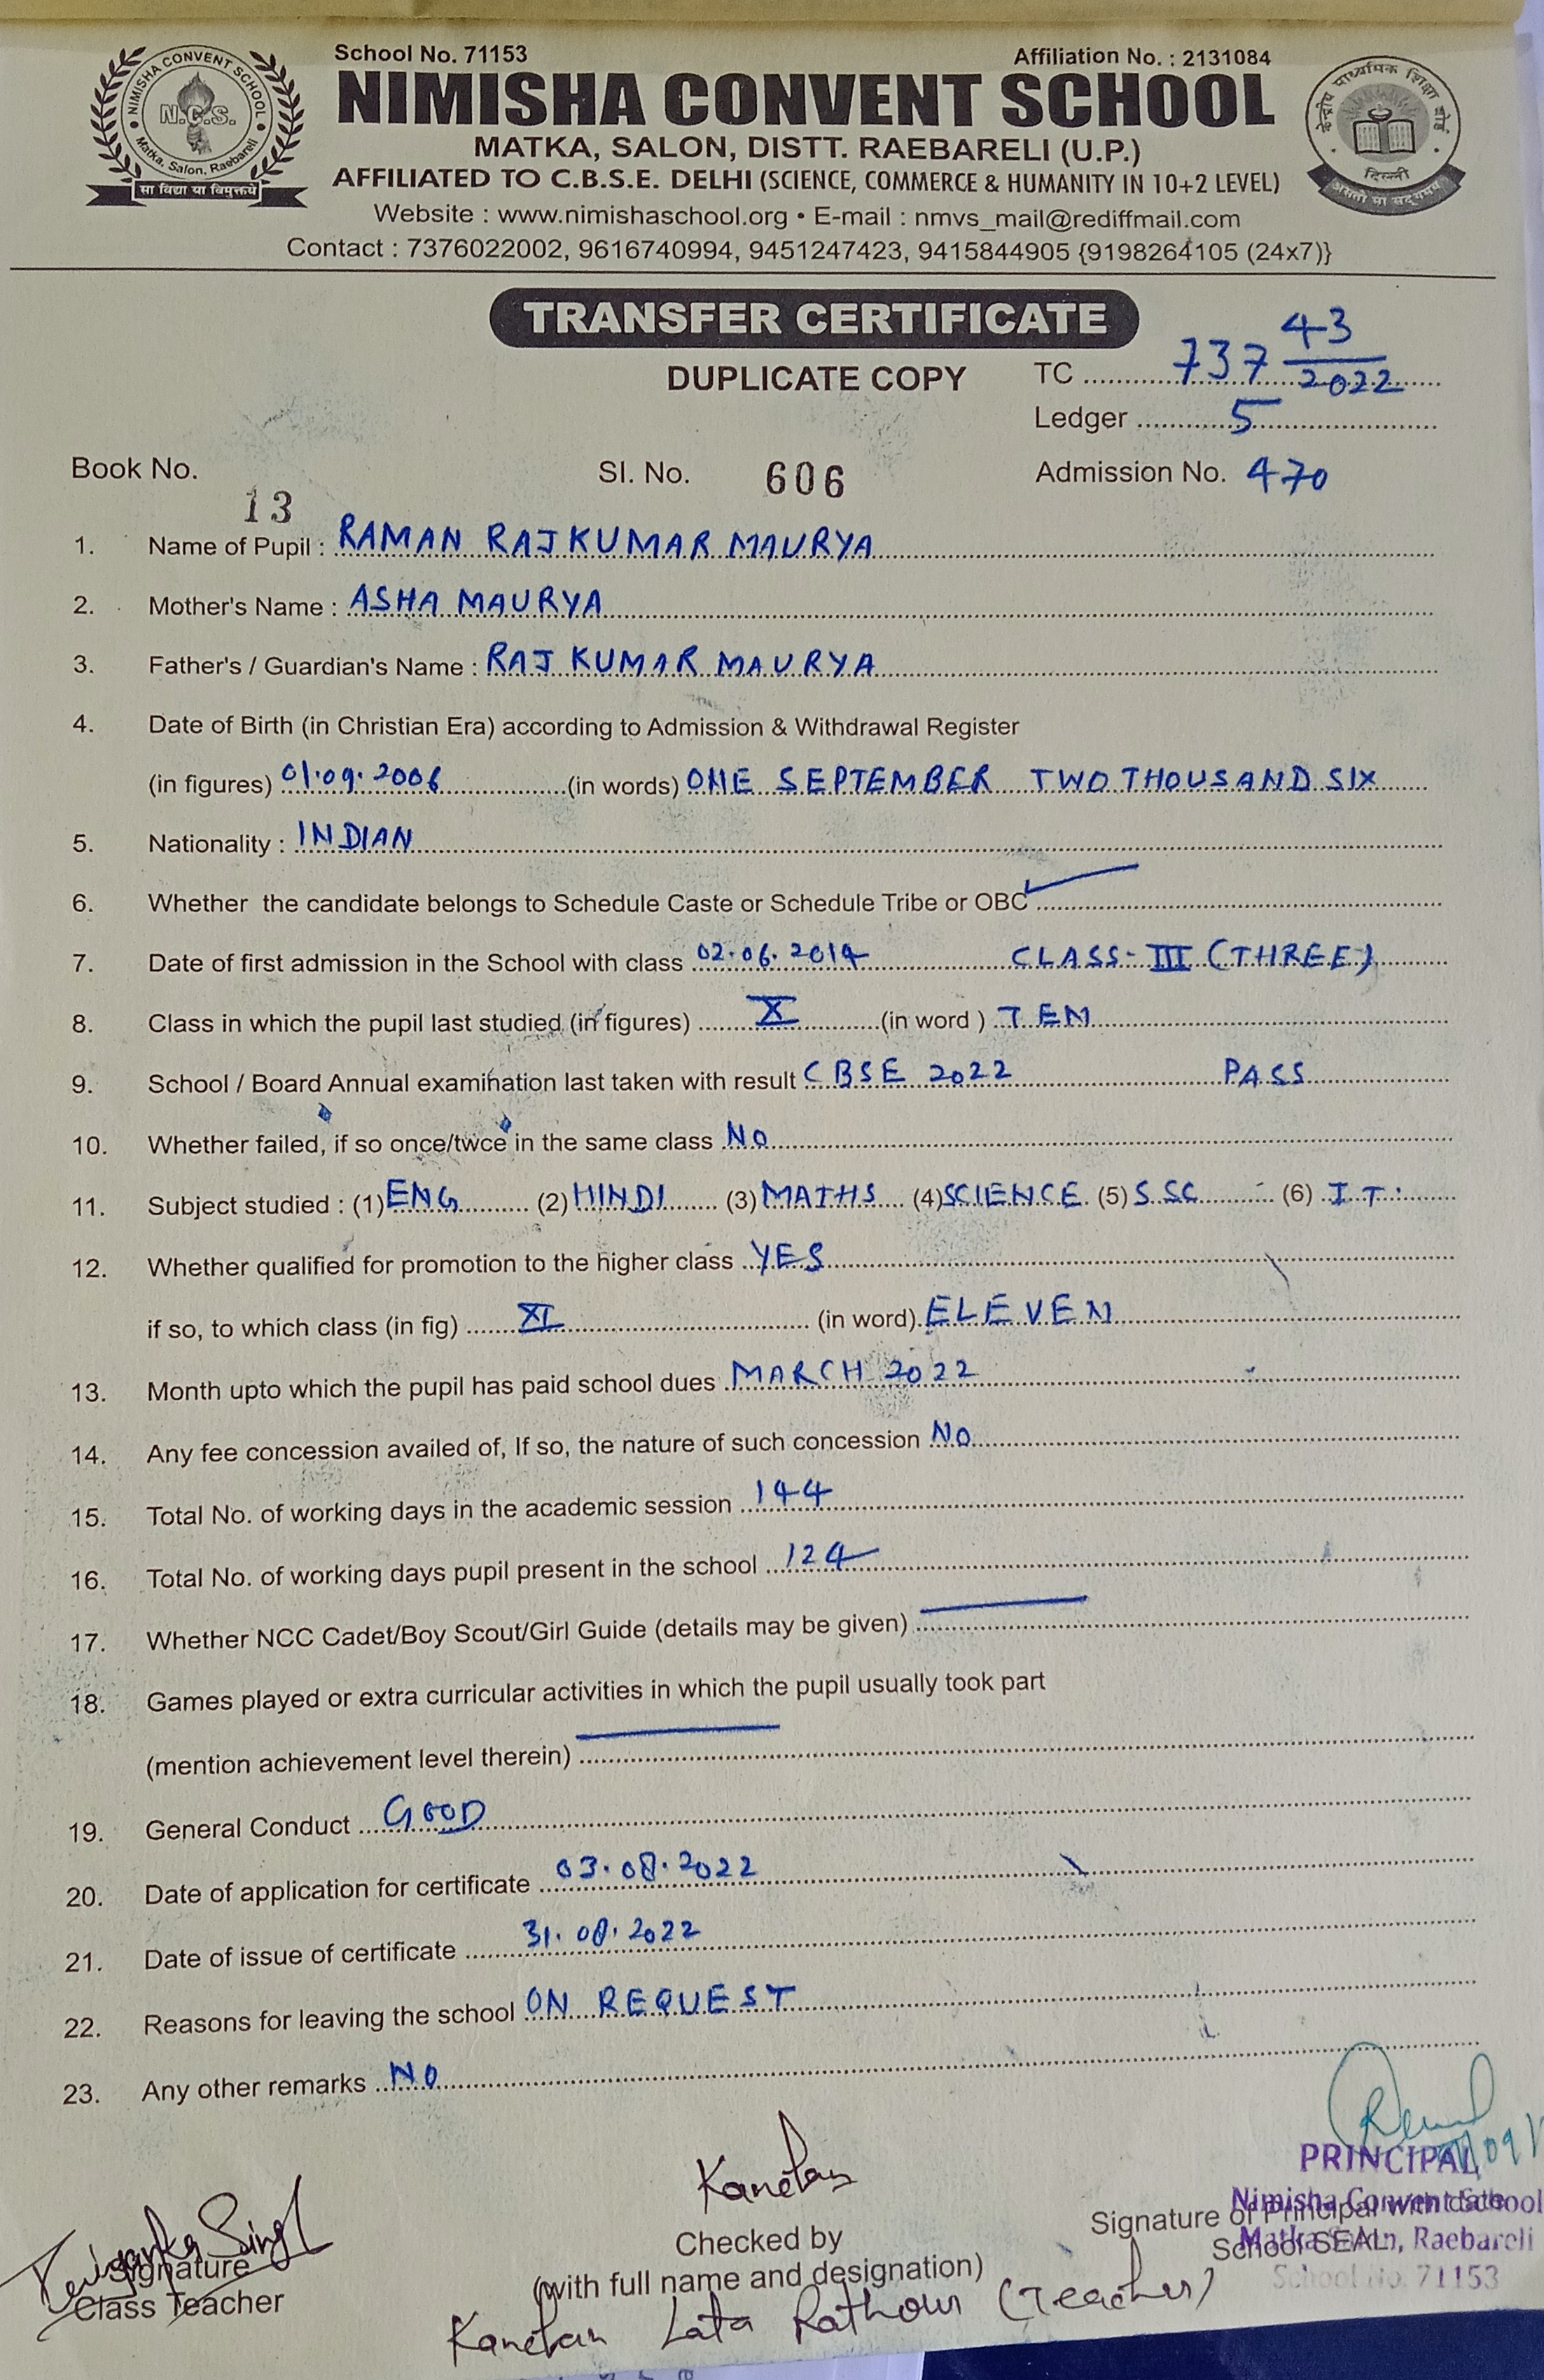 School No. 71153 Affiliation No. : 2131084
NIMISHA CONVENT SCHOOL
NIMISHA CONVENT SCHOOL
N.C.S.
Matka, Salon, Raebareli
सा विद्या या विमुक्तये
केन्द्रीय माध्यमिक शिक्षा बोर्ड
दिल्ली
असतो मा सद्गमय
MATKA, SALON, DISTT. RAEBARELI (U.P.)
AFFILIATED TO C.B.S.E. DELHI (SCIENCE, COMMERCE & HUMANITY IN 10+2 LEVEL)
Website : www.nimishaschool.org • E-mail : nmvs_mail@rediffmail.com
Contact : 7376022002, 9616740994, 9451247423, 9415844905 {9198264105 (24x7)}
TRANSFER CERTIFICATE
DUPLICATE COPY TC 737 43/2022
Ledger 5
Book No. 13 Sl. No. 606 Admission No. 470
1. Name of Pupil : RAMAN RAJ KUMAR MAURYA
2. Mother's Name : ASHA MAURYA
3. Father's / Guardian's Name : RAJ KUMAR MAURYA
4. Date of Birth (in Christian Era) according to Admission & Withdrawal Register
(in figures) 01.09.2006 (in words) ONE SEPTEMBER TWO THOUSAND SIX
5. Nationality : INDIAN
6. Whether the candidate belongs to Schedule Caste or Schedule Tribe or OBC ✓
7. Date of first admission in the School with class 02.06.2014 CLASS-III (THREE)
8. Class in which the pupil last studied (in figures) X (in word ) TEN
9. School / Board Annual examination last taken with result CBSE 2022 PASS
10. Whether failed, if so once/twce in the same class NO
11. Subject studied : (1) ENG (2) HINDI (3) MATHS (4) SCIENCE (5) S.SC (6) I.T.
12. Whether qualified for promotion to the higher class YES
if so, to which class (in fig) XI (in word) ELEVEN
13. Month upto which the pupil has paid school dues MARCH 2022
14. Any fee concession availed of, If so, the nature of such concession NO
15. Total No. of working days in the academic session 144
16. Total No. of working days pupil present in the school 124
17. Whether NCC Cadet/Boy Scout/Girl Guide (details may be given) —
18. Games played or extra curricular activities in which the pupil usually took part
(mention achievement level therein) —
19. General Conduct GOOD
20. Date of application for certificate 03.08.2022
21. Date of issue of certificate 31.08.2022
22. Reasons for leaving the school ON REQUEST
23. Any other remarks NO
PRINCIPAL
Nimisha Convent School
Matka Salon, Raebareli
School No. 71153
Signature of Principal with date
School SEAL
Kanchan
Checked by
(with full name and designation)
Kanchan Lata Rathour (Teacher)
Priyanka Singh
Signature
Class Teacher